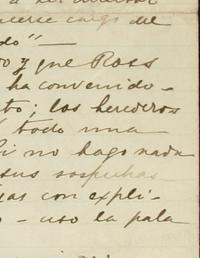 a ser director
hacerse cargo de
do" —
o y que Ross
ha convenido -
to; los herederos
todo una
si no hago nada
sus sospechas
as con expli-
- uso la pala